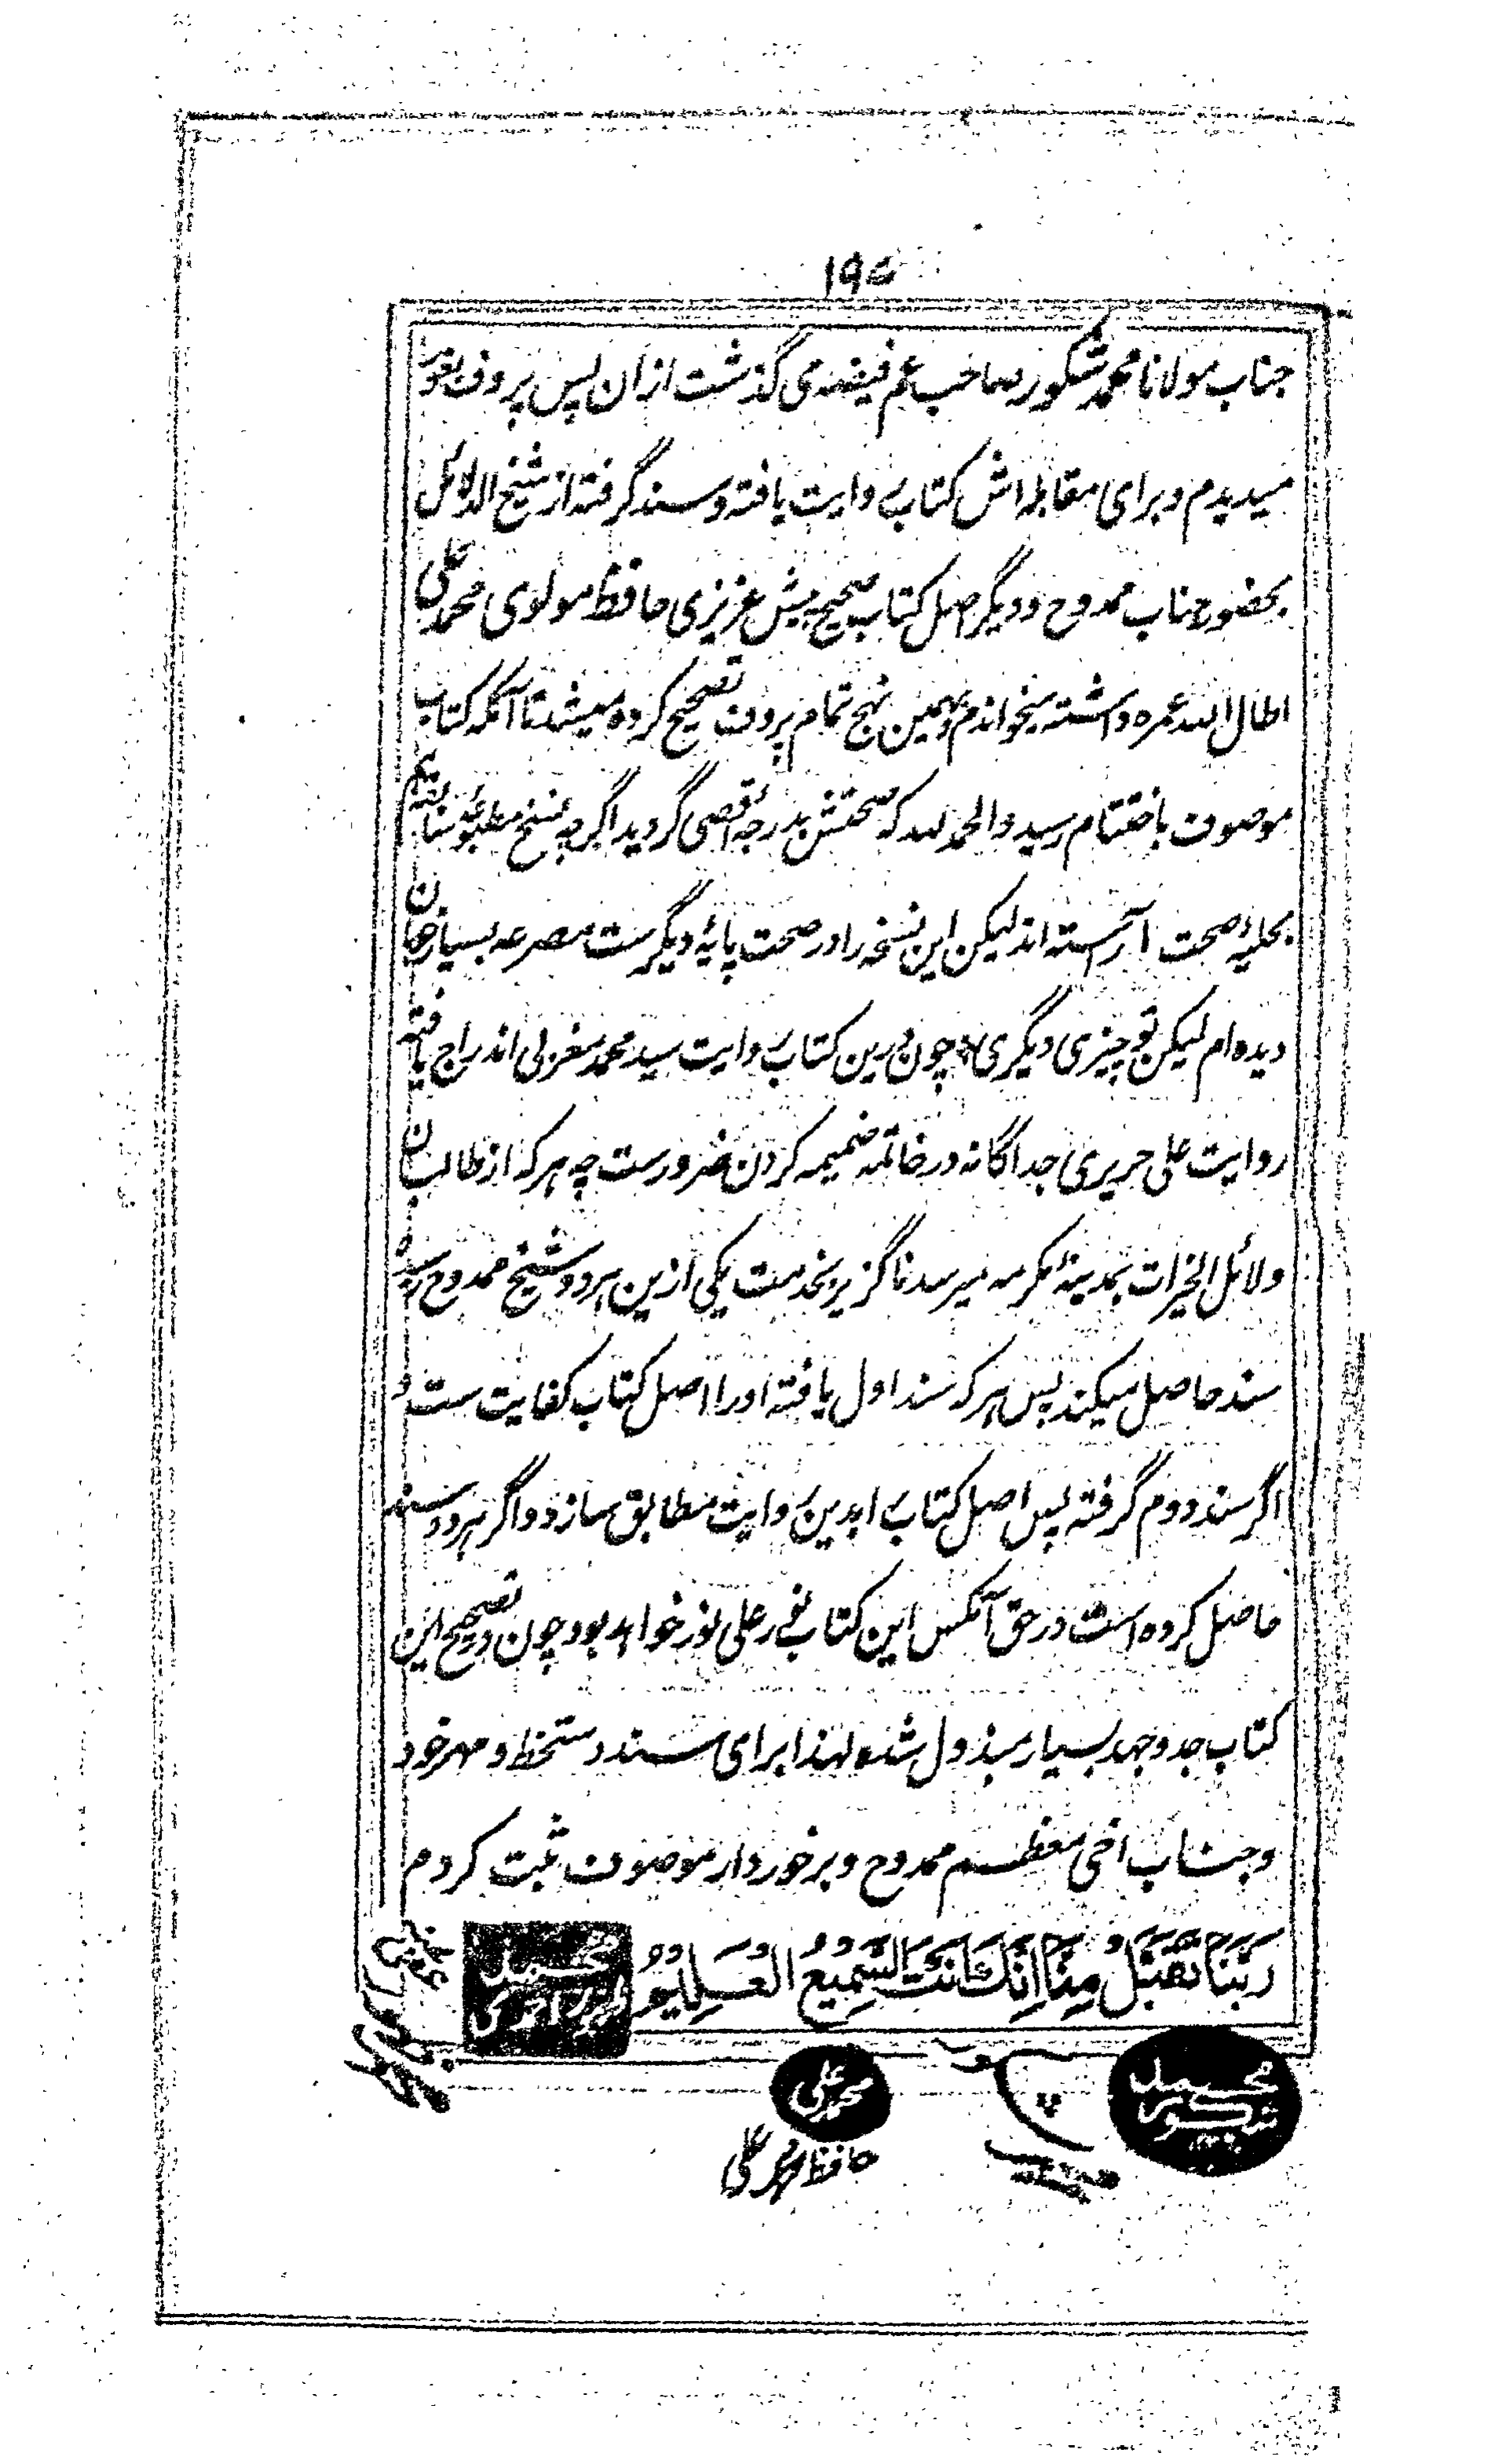 ۱۹۵
جناب مولانا محمد شکور صاحب عم فیضه می گذشت ازان پس پروف بغور
میدیدم و برای مقابله اش کتاب روایت یافته و سند گرفته از شیخ الدلائل
بحضور جناب ممدوح و دیگر اصل کتاب صحیح پیش عزیزی حافظ مولوی محمد علی
اطال الله عمره داشته میخواندم و بهمین نهج تمام پروف تصحیح کرده میشد تا آنکه کتاب
موصوف باختتام رسید والحمد لله که صحتش بدرجه اقصی گردید اگرچه نسخ مطبوعه سابقه هم
بحلیهٔ صحت آراسته اند لیکن این نسخه را در صحت پایهٔ دیگرست مصرعه بسیار خوبان
دیده ام لیکن تو چیزی دیگری چون درین کتاب روایت سید محمد مغربی اندراج یافته
روایت علی حریری جداگانه در خاتمه ضمیمه کردن ضرورست چه هر که از طالبان
دلائل الخیرات بمدینهٔ مکرمه میرسد ناگزیر بخدمت یکی ازین هر دو شیخ ممدوح رسیده
سند حاصل میکند پس هر که سند اول یافته او را اصل کتاب کفایت ست و
اگر سند دوم گرفته پس اصل کتاب را بدین روایت مطابق سازد و اگر هر دو سند
حاصل کرده است در حق آنکس این کتاب نور علی نور خواهد بود چون در تصحیح این
کتاب جد و جهد بسیار مبذول شده لهذا برای سند دستخط و مهر خود
و جناب اخی معظم ممدوح و برخوردار موصوف ثبت کردم
رَبَّنَا تَقَبَّلْ مِنَّا اِنَّكَ اَنْتَ السَّمِيعُ الْعَلِيمُ
محمد شکور
محمد علی
حافظ محمد علی